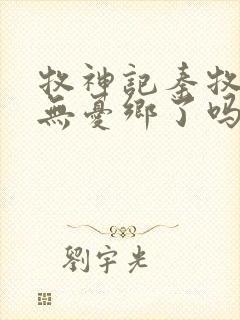 牧神記秦牧
無憂鄉了吗
劉宇光